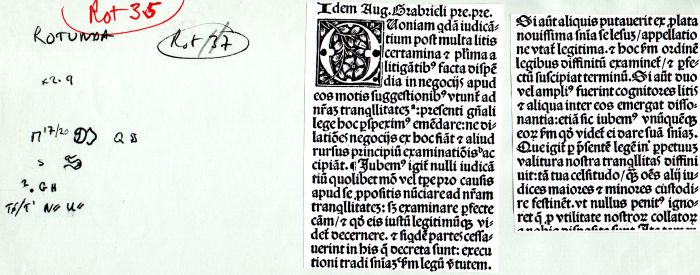 Rot 3.5
ROTUNDA
Rot 37
x2.9
M 17/20 D Q
S S
2. GH
Idem Aug. Gabrieli pre. pre.
Quoniam qdā iudicā
tium post multa litis
certamina ⁊ pſima a
litigātibꝰ facta dispē
dia in negocijs apud
eos motis suggestionibꝰ vtunt̄ ad
nr̄as tranqllitates: presenti gn̄ali
lege hoc ꝓspeximꝰ emēdare: ne di⸗
latiōes negocijs ex hoc fiāt ⁊ aliud
rursus principiū examinatiōis ac
cipiāt. ¶ Jubemꝰ igit̄ nulli iudicā
tiū quolibet mō vel tꝑe pro causis
apud se ꝓpositis nūciare ad nr̄am
tranqllitatez: sꝫ examinare ꝑfecte
cām/ ⁊ qd̄ eis iustū legitimūqꝫ vi⸗
det̄ decernere. ⁊ siqdē partes cessa⸗
uerint in his q̄ decreta sunt: execu
tioni tradi sniaꝫ ẜm legū ꝟtutem.
Si aūt aliquis putauerit ex plata
nouissima snīa se lesuꝫ/ appellatio
ne vtat̄ legitima. ⁊ hoc ẜm ordinē
legibus diffinitū examinet̄/ ⁊ ꝑfe⸗
ctū suscipiat terminū. Si aūt duo
vel ampliꝰ fuerint cognitores litis
⁊ aliqua inter eos emergat disso⸗
nantia: etiā sic iubemꝰ vnūquēqꝫ
eoꝝ ẜm qd̄ videt̄ ei dare suā sniaꝫ.
Que igit̄ ꝑ p̄sentē legē in ꝑpetuuꝫ
valitura nostra tranqllitas diffini
uit: tā tua celsitudo/ q̄ꝫ oēs alij iu⸗
dices maiores ⁊ minores custodi⸗
re festinēt. vt nullus penitꝰ igno⸗
ret q̄ ꝓ vtilitate nostroꝝ collatoꝝ